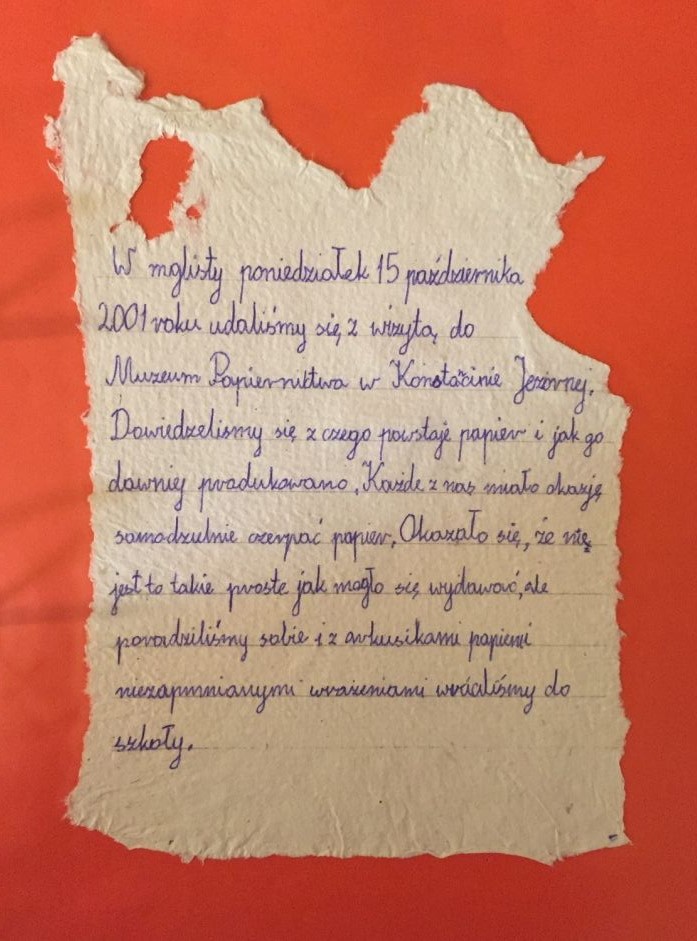 W mglisty poniedziałek 15 października
2001 roku udaliśmy się z wizytą do
Muzeum Papiernictwa w Konstacinie Jeziornej.
Dowiedzelismy się z czego powstaje papier i jak go
dawniej produkowano. Każde z nas miało okazję
samodzielnie czerpać papier. Okazało się, że nie
jest to takie proste jak mogło się wydawać, ale
poradziliśmy sobie i z arkusikami papieru
niezapmnianymi wrażeniami wróciliśmy do
szkoły.